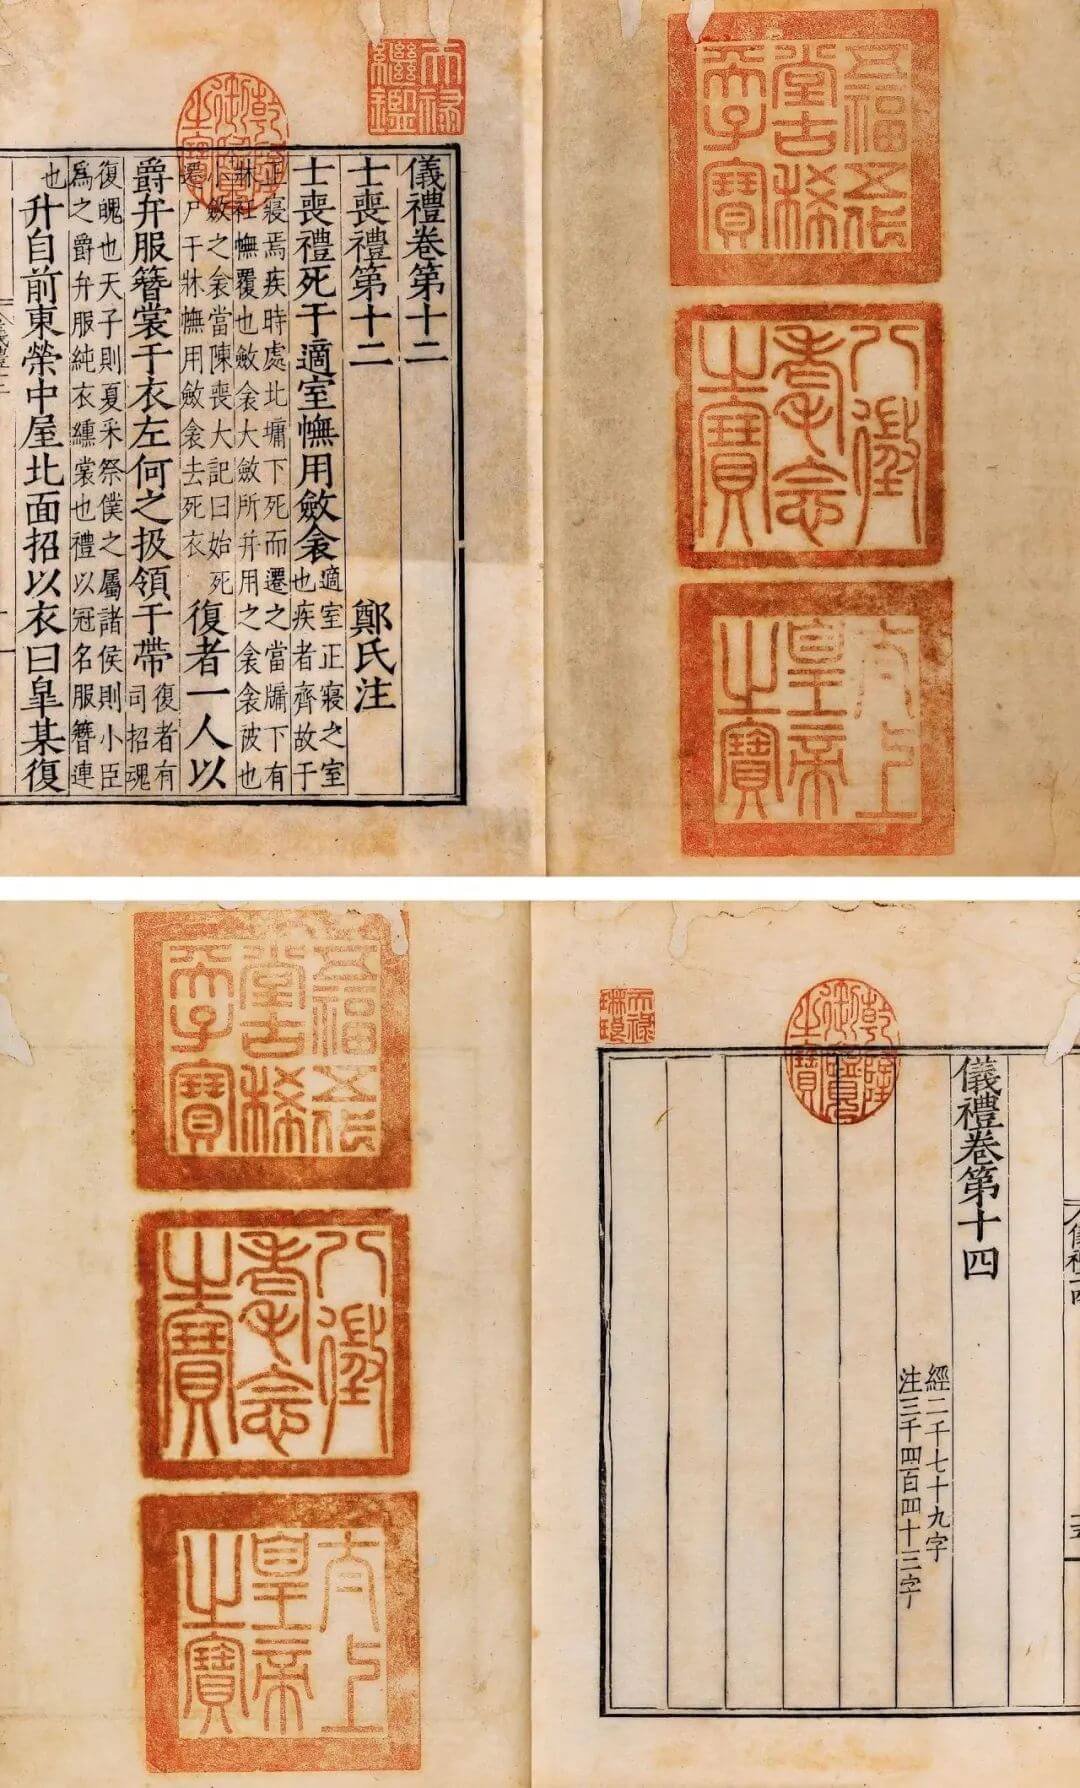 五福五代
堂古稀
天子寶
八徵
耄念
之寶
太上
皇帝
之寶
天祿
繼鑑
乾隆
御覽
之寶
儀禮卷第十二
士喪禮第十二 鄭氏注
士喪禮死于適室幠用斂衾
適室正寢之室
也疾者齊故于
正寢焉疾時處北墉下死而遷之當牖下有
牀衽幠覆也斂衾大斂所并用之衾衾被也
小斂之衾當陳喪大記曰始死
遷尸于牀幠用斂衾去死衣
復者一人以
爵弁服簪裳于衣左何之扱領于帶
復者有
司招魂
復魄也天子則夏采祭僕之屬諸侯則小臣
爲之爵弁服純衣纁裳也禮以冠名服簪連
也
升自前東榮中屋北面招以衣曰皐某復
儀禮卷第十四
經二千七十九字
注三千四百四十三字
乾隆
御覽
之寶
天祿
琳琅
五福五代
堂古稀
天子寶
八徵
耄念
之寶
太上
皇帝
之寶